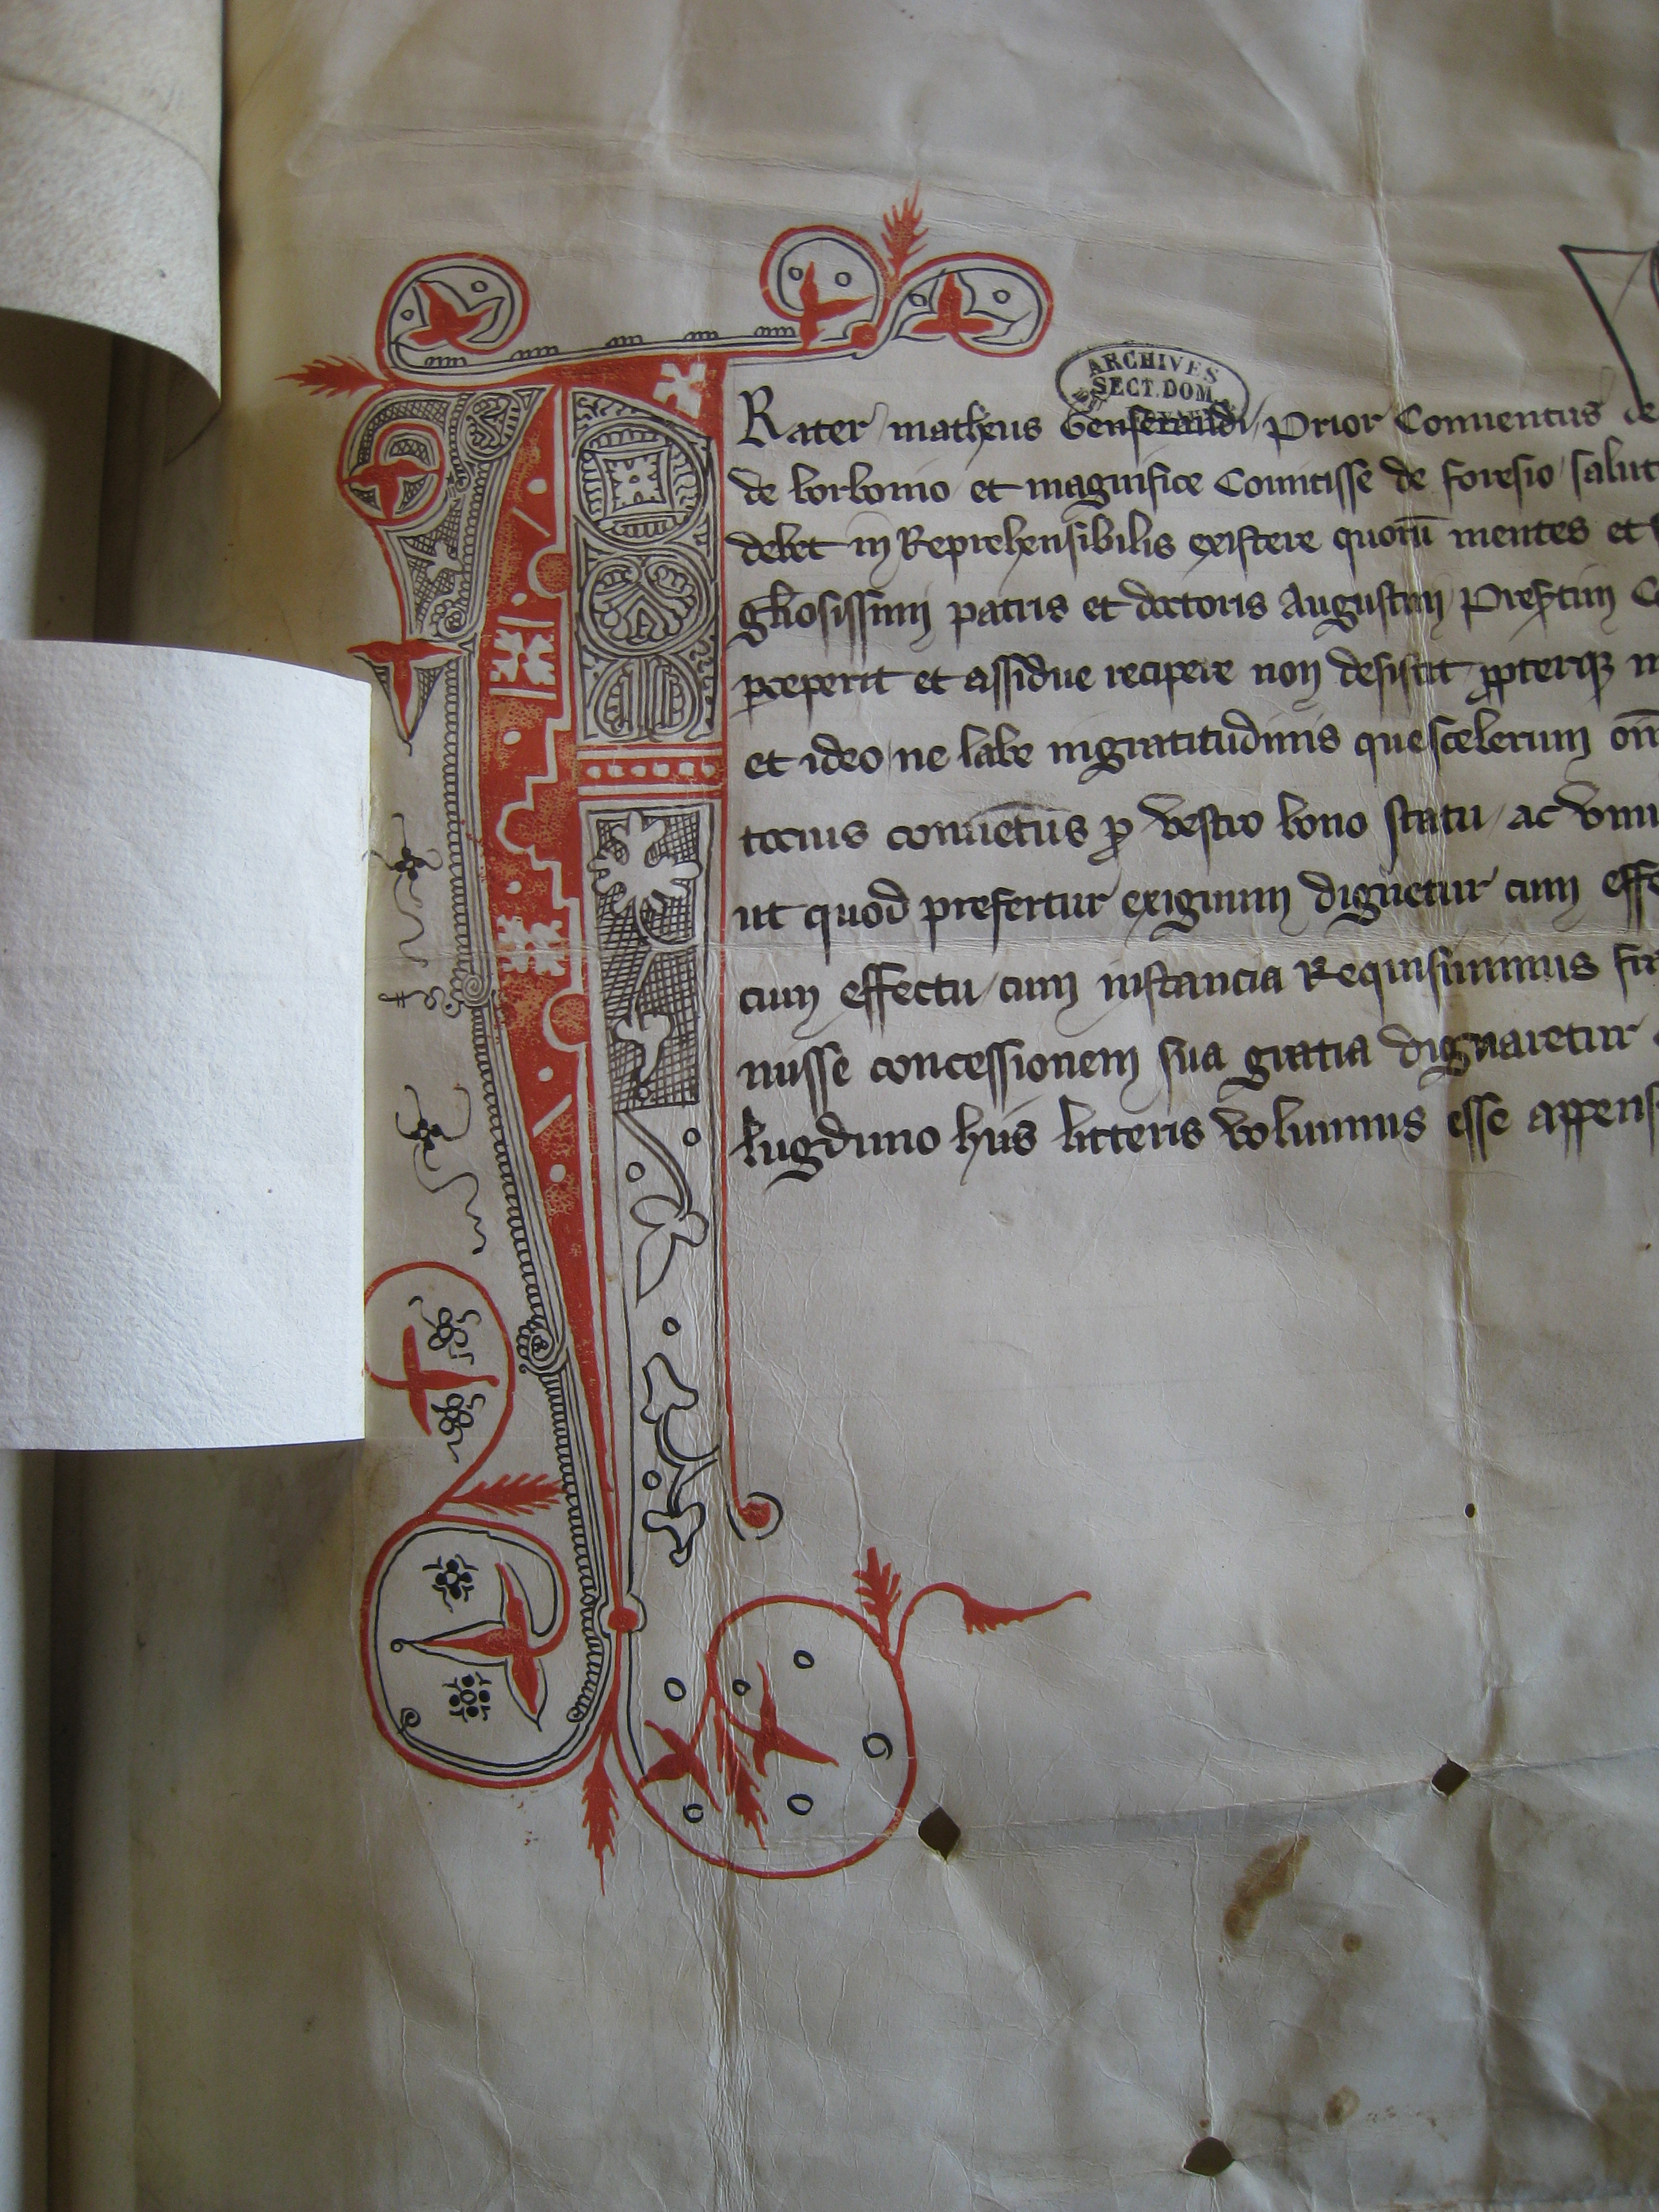 ARCHIVES
SECT. DOM.
Frater matheus Genserandi, Prior Conuentus de
de borbonio et magnifice Comitisse de foresio salut
debet irreprehensibilis existere quorū mentes et
gliosissimi patris et doctoris Augustini
et assidue recipere non desistit
et ideo ne labe ingratitudinis que scelerum om̄
tocius conuētus p vestro bono statu ac
ut quod prefertur exiguum dignetur cum effe
cum effectu cum instancia Requisiuimus fra
nisse concessionem sua gratia dignaretur
lugduno hiis litteris volumus esse appens